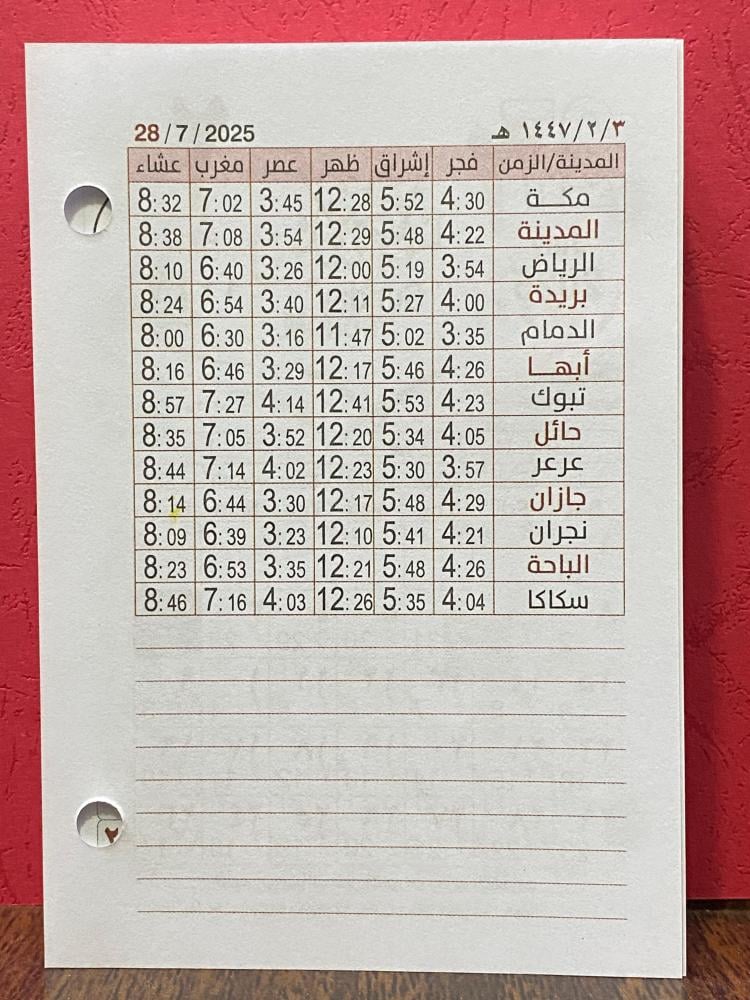 ١٤٤٧/٢/٣ هـ 28/7/2025
المدينة/الزمن فجر إشراق ظهر عصر مغرب عشاء
مكـــة 4:30 5:52 12:28 3:45 7:02 8:32
المدينة 4:22 5:48 12:29 3:54 7:08 8:38
الرياض 3:54 5:19 12:00 3:26 6:40 8:10
بريدة 4:00 5:27 12:11 3:40 6:54 8:24
الدمام 3:35 5:02 11:47 3:16 6:30 8:00
أبهـــا 4:26 5:46 12:17 3:29 6:46 8:16
تبوك 4:23 5:53 12:41 4:14 7:27 8:57
حائل 4:05 5:34 12:20 3:52 7:05 8:35
عرعر 3:57 5:30 12:23 4:02 7:14 8:44
جازان 4:29 5:48 12:17 3:30 6:44 8:14
نجران 4:21 5:41 12:10 3:23 6:39 8:09
الباحة 4:26 5:48 12:21 3:35 6:53 8:23
سكاكا 4:04 5:35 12:26 4:03 7:16 8:46